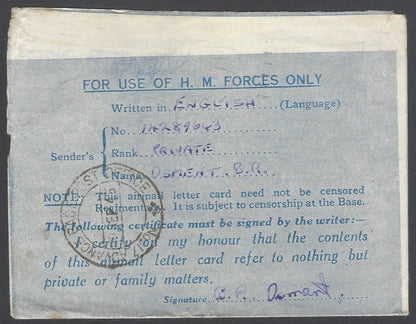 FOR USE OF H. M. FORCES ONLY
Written in ENGLISH (Language)
Sender's
No. 14289643
Rank PRIVATE
Name OSMENT B.R.
NOTE: This airmail letter card need not be censored
Regimentally. It is subject to censorship at the Base.
The following certificate must be signed by the writer:-
I certify on my honour that the contents
of this airmail letter card refer to nothing but
private or family matters.
Signature B. R. Osment.